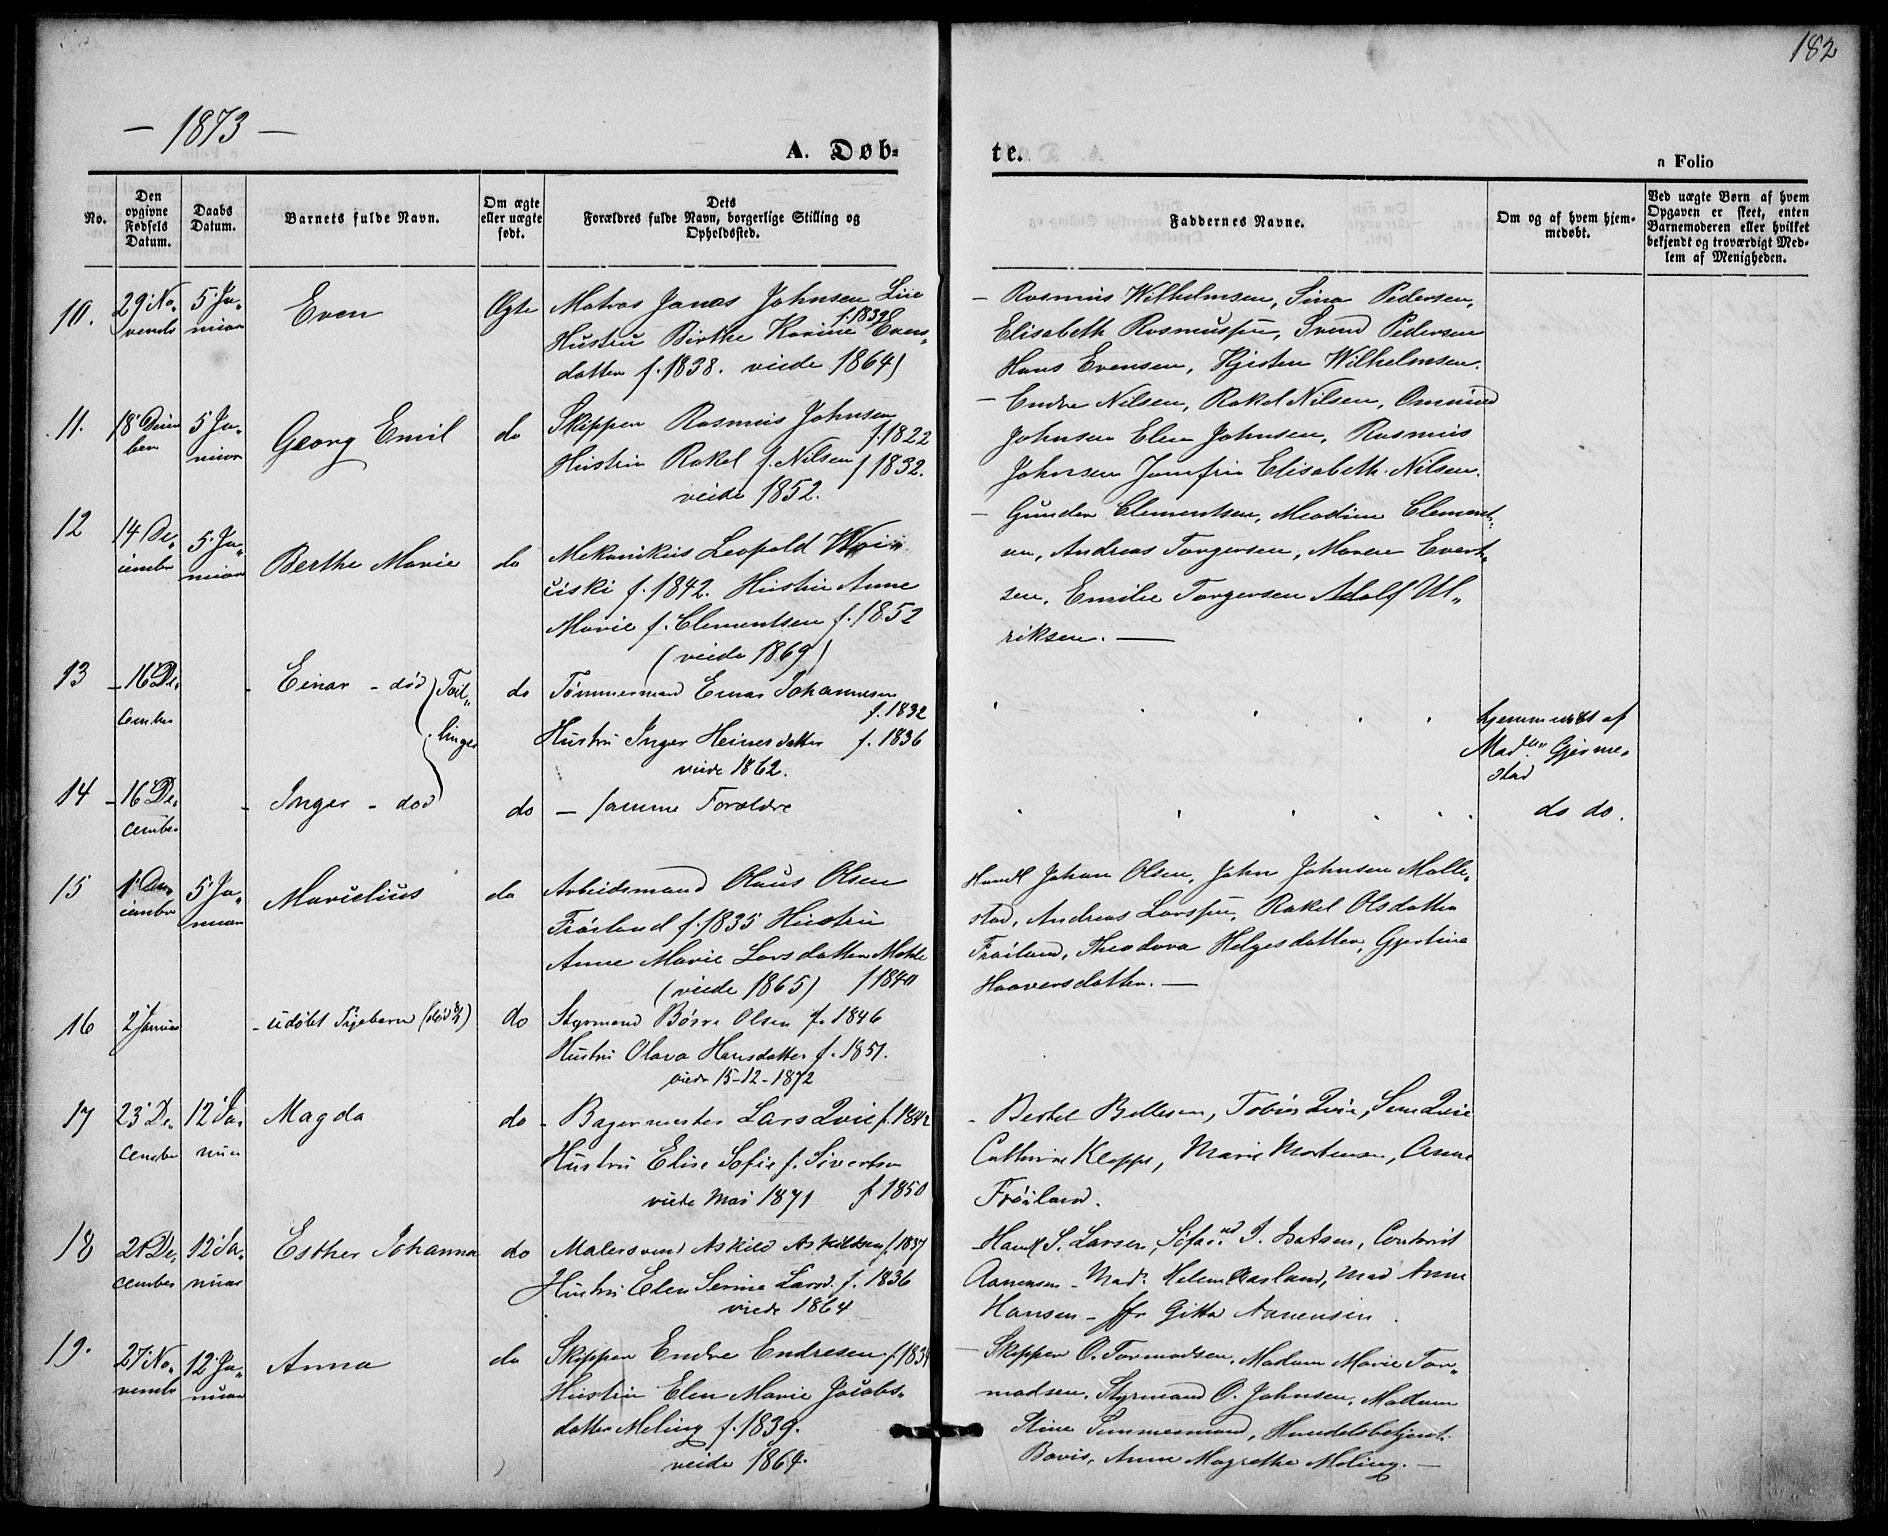 182
— 1873 —
A. Døb-
te.
a Folio
No.
Den opgivne Fødsels Datum.
Daabs Datum.
Barnets fulde Navn.
Om ægte eller uægte født.
Dets Forældres fulde Navn, borgerlige Stilling og Opholdssted.
Faddernes Navne.
Om og af hvem hjemmedøbt.
Ved uægte Børn af hvem Opgaven er skeet, enten Barnemoderen eller hvilket bekjendt og troværdigt Medlem af Menigheden.
10.
29 No-
vembr
5 Ja-
nuar
Even
Ægte
Matros Jonas Johnsen Lie
f. 1839
Hustru Birthe Karine Evens-
datter f. 1838. viede 1864)
— Rasmus Wilhelmsen, Sina Pedersen,
Elisabeth Rasmussen, Svend Pedersen
Hans Evensen, Kjisten Wilhelmsen.
11.
18 Decem
ber
5 Ja-
nuar
Georg Emil
do
Skipper Rasmus Johnsen
f. 1822
Hustru Rakel f. Nilsen f 1832.
viede 1852.
— Endre Nilsen, Rakel Nilsen, Ommund
Johnsen Elen Johnsen, Rasmus
Johnsen Jomfru Elisabeth Nilsen.
12
14 De-
cembr
5 Ja-
nuar
Berthe Marie
do
Mekanikus Leopold
f. 1842. Hustru Anne
Marie f. Clementsen f. 1852
(viede 1869)
— Gunder Clementsen, Clement-
sen, Andreas Torgersen, Maren Evert-
sen, Emilie Torgersen Adolf Ul-
riksen. —
13
16 De-
cember
Einar - død
Tvil-
linger
do
Tømmermand Johannesen
f. 1832
Hustru Inger Heinesdatter f. 1836
viede 1862.
hjemmedøbt af
Mad Gjerme-
stad
14
16 De-
cember
Inger - død
do
— samme Forældre
do do.
15
1 De-
cembr
5 Ja-
nuar
Marielius
do
Arbeidsmand Olaus Olsen
Frøiland f. 1835 Hustru
Anne Marie Larsdatter
(viede 1865) f 1840
Handl Johan Olsen, John Johnsen Malle-
stad, Andreas Larssen, Rakel Olsdatter
Frøiland, Theodora Helgesdatter, Gjertine
Haaversdatter. —
16
2 Januar
- udøbt Pigebarn
do
Styrmand Børre Olsen f. 1846
Hustru Olava Hansdatter f. 1851.
viede 15-12-1872
17
23 De-
cembr
12 Ja-
nuar
Magda
do
- Bagermester Lars Qvie f. 1842
Hustru Elise Sofie f. Sivertsen
viede Mai 1871 f. 1850
- Bertel Bellesen, Tobias Qvie, Qvie
Cathrine Kleppe, Marie Mortensen, Anne
Frøiland.
18
21 De-
cember
12 Ja-
nuar
Esther Johanna
do
Malersvend Askild Askildsen f. 1837
Hustru Elen Serine Larsd. f. 1836
viede 1864
Handl S. Larsen, I. Isaksen,
Aanensen - Mad. Helene Aarsland, Mad Anne
Hansen - Jfr Gitta Aanensen
19.
27 No-
vembr
12 Ja-
nuar
Anna
do
Skipper Endre Endresen f. 1834
Hustru Elen Marie Jacobs-
datter Meling f. 1839.
viede 1864.
— Skipper O. Tormodsen, Madam Marie Tor-
modsen, Styrmand O. Johnsen, Madam
Stine Timmermand, Handelsbetjent
Bovis, Anne Magrethe Meling. —